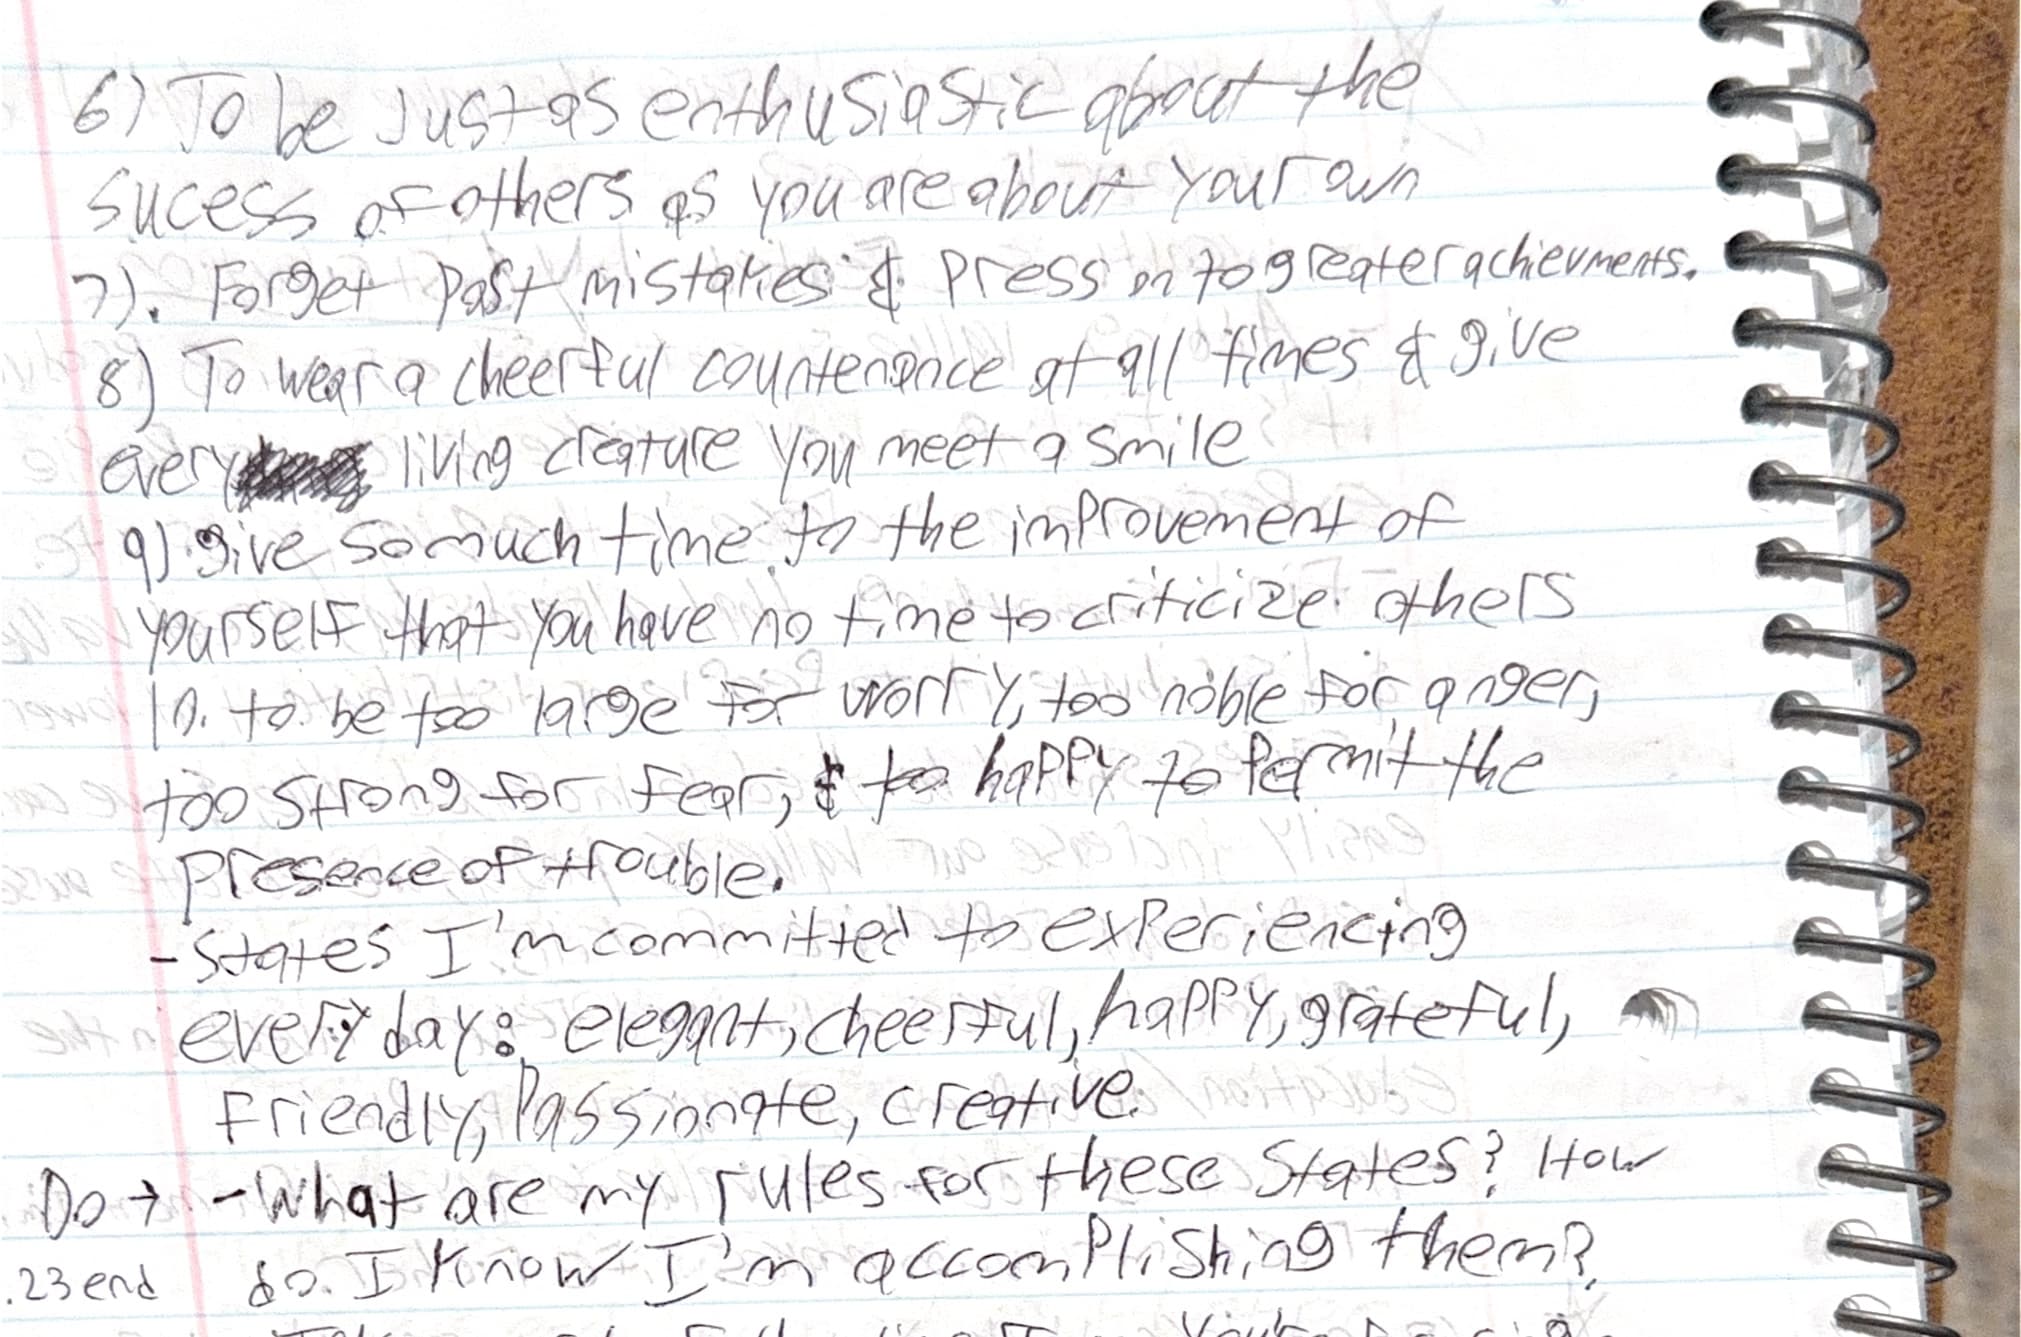 6) To be Just as enthusiastic about the
sucess of others as you are about your own
7). Forget past mistakes & press on to greater achievments.
8) To wear a cheerful countenance at all times & give
every living creature you meet a smile
9) give so much time to the improvement of
yourself that you have no time to criticize others
10. to be too large for worry, too noble for anger,
too strong for fear, & too happy to permit the
presence of trouble.
- states I'm committed to experiencing
every day: elegant, cheerful, happy, grateful,
Friendly, Passionate, creative.
Do → - What are my rules for these states? How
.23 end do I know I'm accomplishing them?